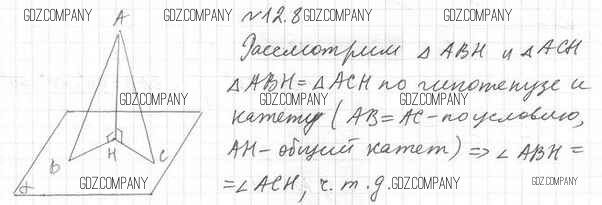 GDZ.COMPANY GDZ.COMPANY GDZ.COMPANY GDZ.COMPANY
№12.8
A
Рассмотрим △ABH и △ACH
△ABH = △ACH по гипотенузе и
GDZ.COMPANY GDZ.COMPANY GDZ.COMPANY
катету (AB = AC - по условию,
AH - общий катет) => ∠ABH =
B H C
= ∠ACH, ч.т.д.
α
GDZ.COMPANY GDZ.COMPANY GDZ.COMPANY